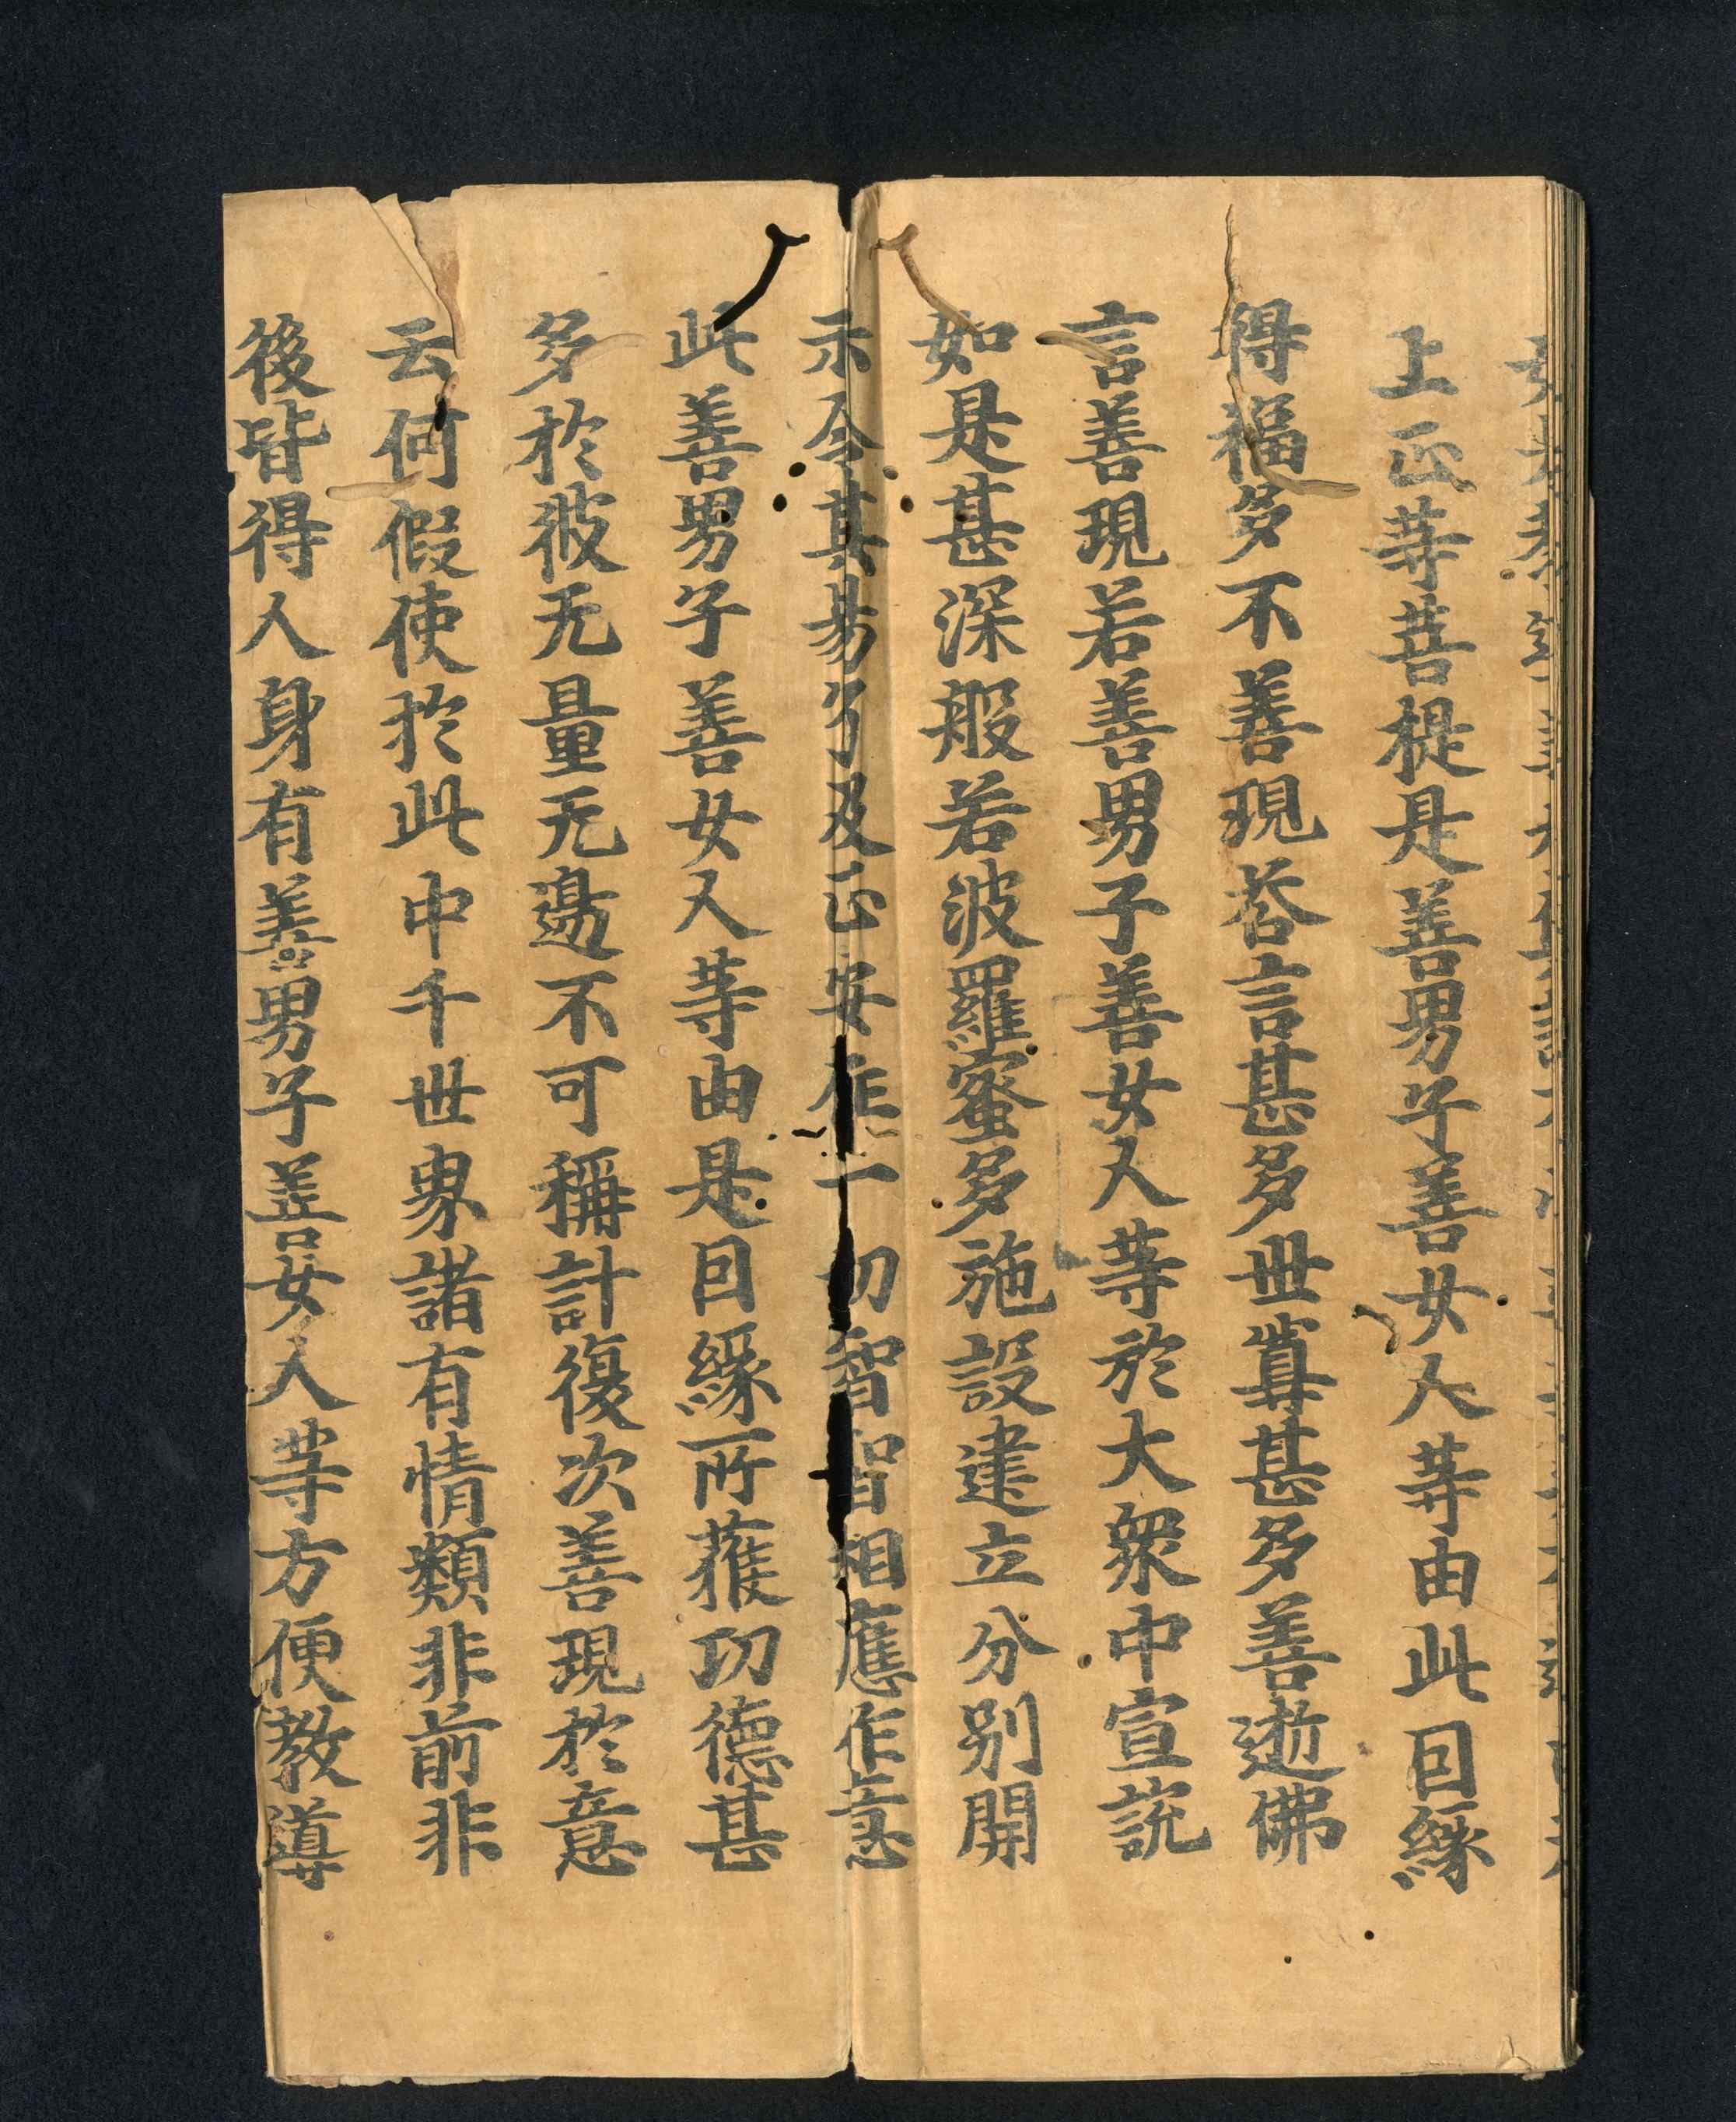 上正等菩提是善男子善女人等由此因緣
得福多不善現荅言甚多世尊甚多善逝佛
言善現若善男子善女人等於大衆中宣說
如是甚深般若波羅蜜多施設建立分别開
示令其易了及正安住一切智智相應作意
此善男子善女人等由是因緣所獲功德甚
多於彼无量无邊不可稱計復次善現於意
云何假使於此中千世界諸有情類非前非
後皆得人身有善男子善女人等方便教導